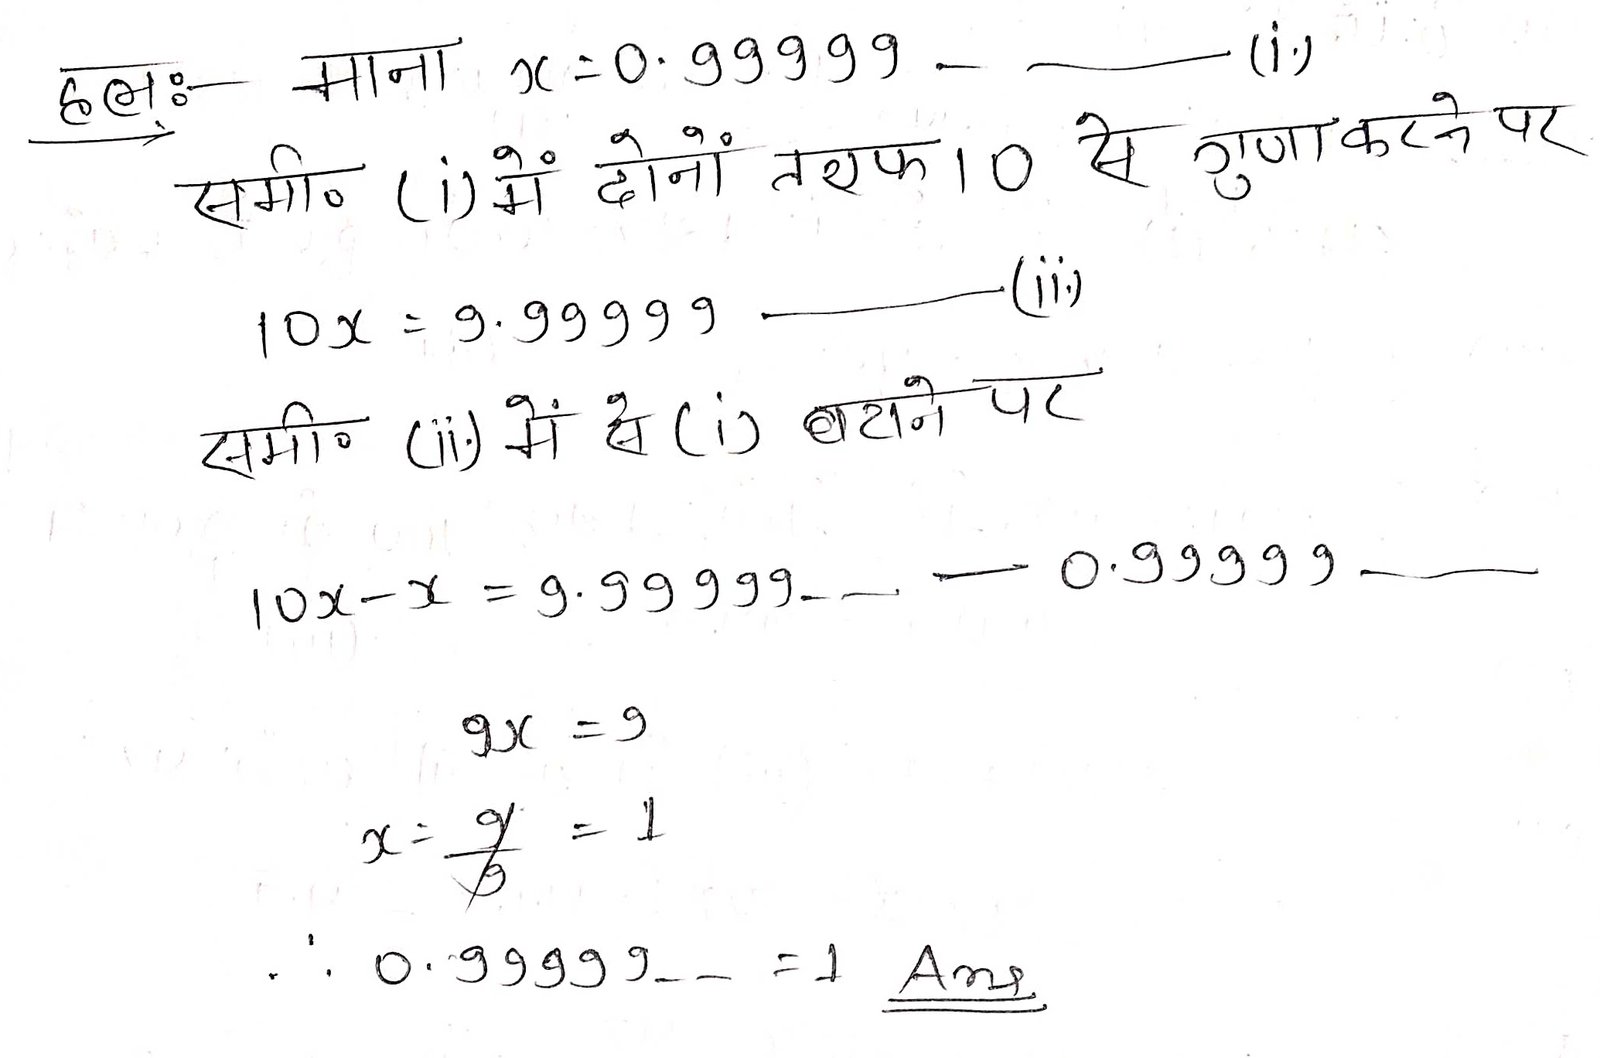 हलः- माना x = 0.99999 - —— (i)
समी० (i) में दोनों तरफ 10 से गुणा करने पर
10x = 9.99999 —— (ii)
समी० (ii) में से (i) घटाने पर
10x - x = 9.99999-- — 0.99999 ——
9x = 9
x = 9/9 = 1
∴ 0.99999-- = 1 Ans